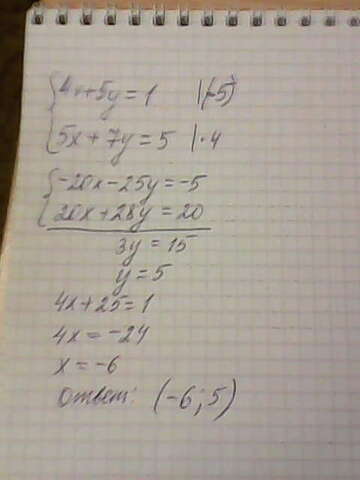 4x+5y=1 |(-5)
5x+7y=5 |·4
-20x-25y=-5
20x+28y=20
3y=15
y=5
4x+25=1
4x=-24
x=-6
ответ: (-6;5)